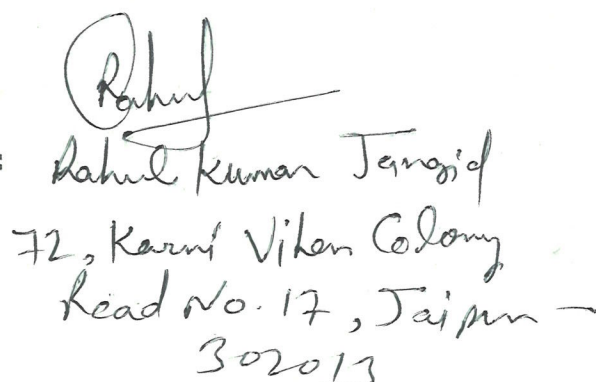 Rahul
: Rahul Kumar Jangid
72, Karni Vihar Colony
Road No. 17, Jaipur -
302013